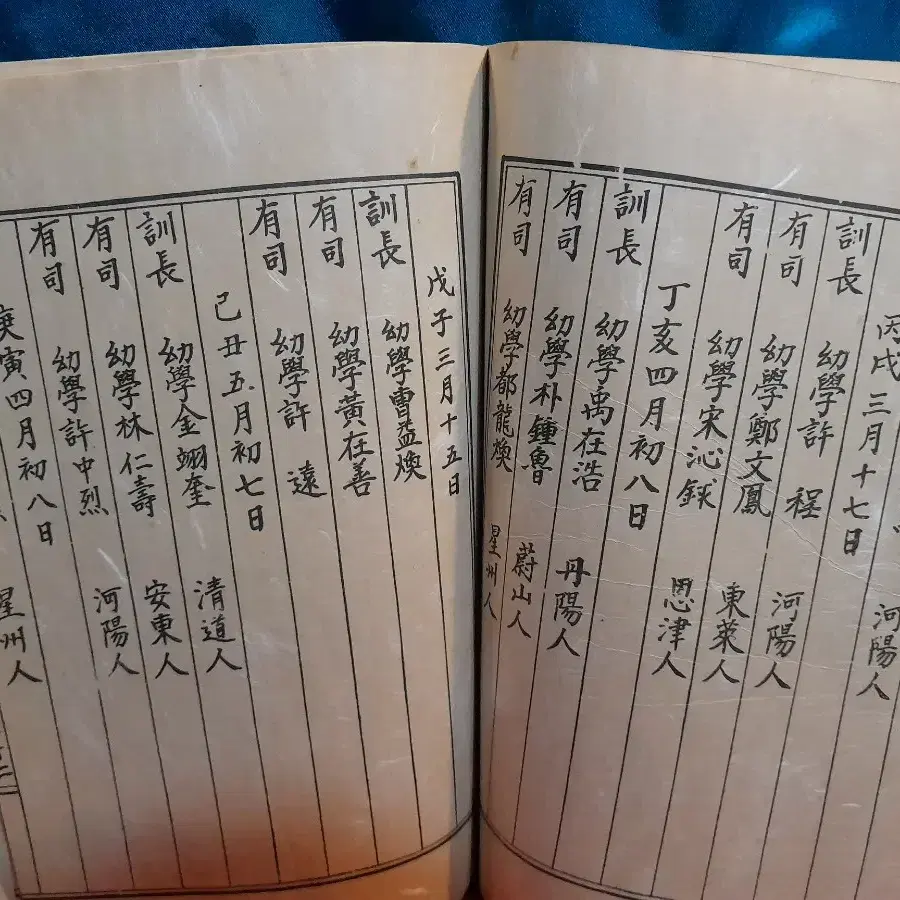 河陽人
丙戌三月十七日
訓長 幼學許 程 河陽人
有司 幼學鄭文鳳 東萊人
有司 幼學宋沁銶 恩津人
丁亥四月初八日
訓長 幼學禹在浩 丹陽人
有司 幼學朴鍾魯 蔚山人
有司 幼學都龍煥 星州人
戊子三月十五日
訓長 幼學曺益煥
有司 幼學黃在善
有司 幼學許 遠
己丑五月初七日
訓長 幼學金翊奎 清道人
有司 幼學林仁壽 安東人
有司 幼學許中烈 河陽人
庚寅四月初八日
星州人